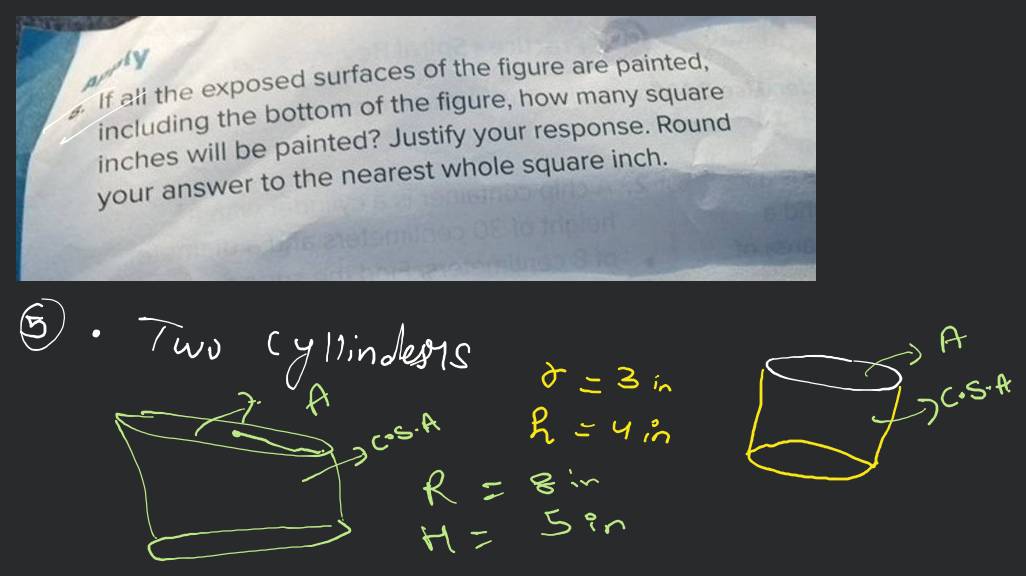 Apply
5. If all the exposed surfaces of the figure are painted,
including the bottom of the figure, how many square
inches will be painted? Justify your response. Round
your answer to the nearest whole square inch.
5 . Two Cyllinders
A
C.S.A
r = 3 in
h = 4 in
R = 8 in
H = 5 in
A
C.S.A